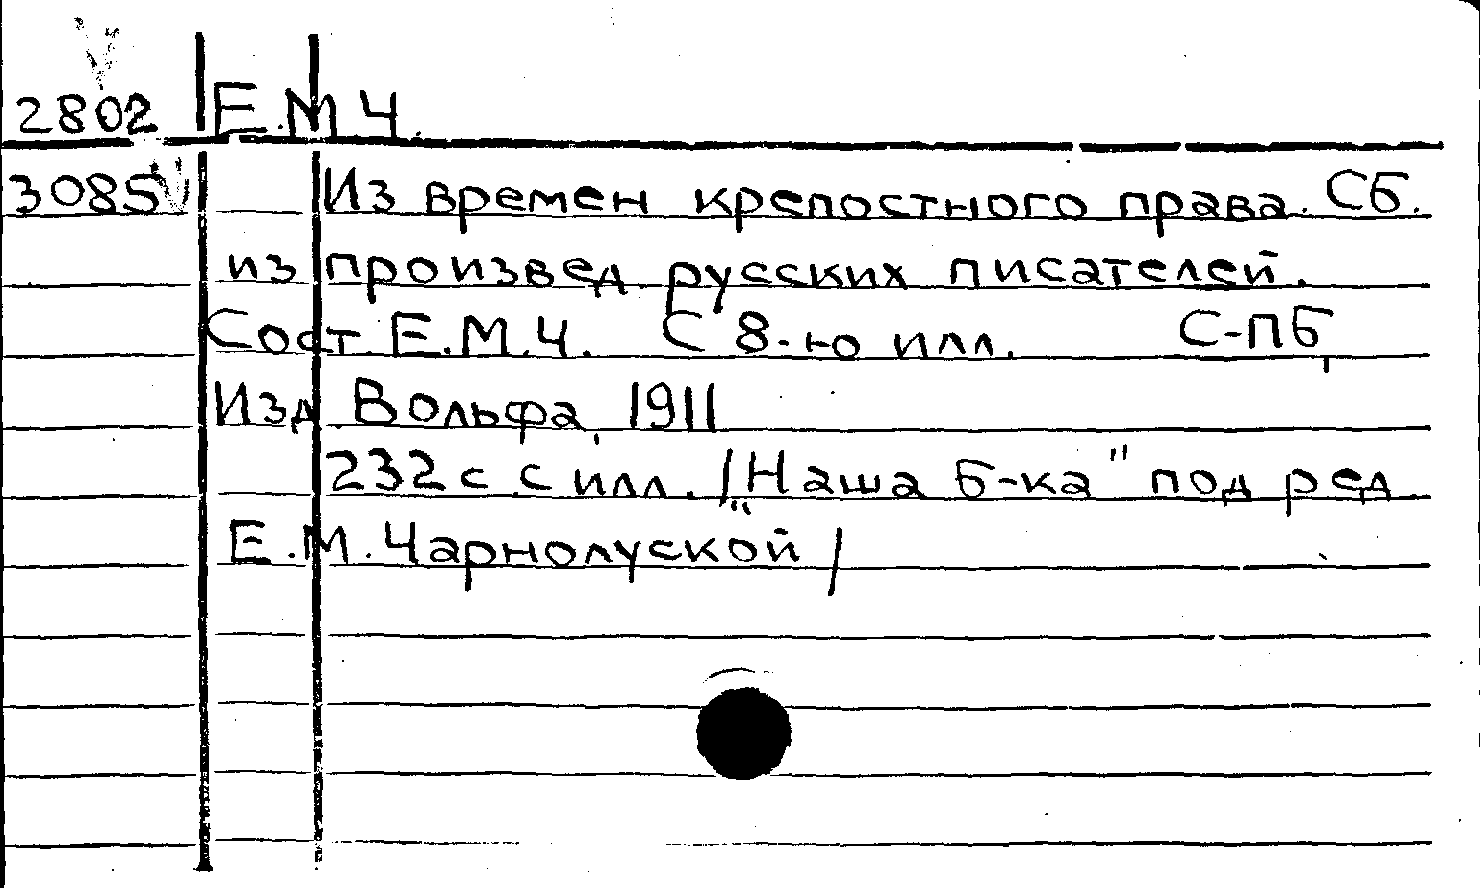 2802 Е.М.Ч.
3085 Из времен крепостного права. Сб.
из произвед. русских писателей.
Сост. Е.М.Ч. С 8-ю илл. С-ПБ,
Изд. Вольфа, 1911
232 с. с илл. /„Наша б-ка" под ред.
Е.М.Чарнолуской/